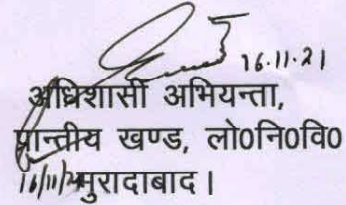 16.11.21
अधिशासी अभियन्ता,
प्रान्तीय खण्ड, लो०नि०वि०
मुरादाबाद।